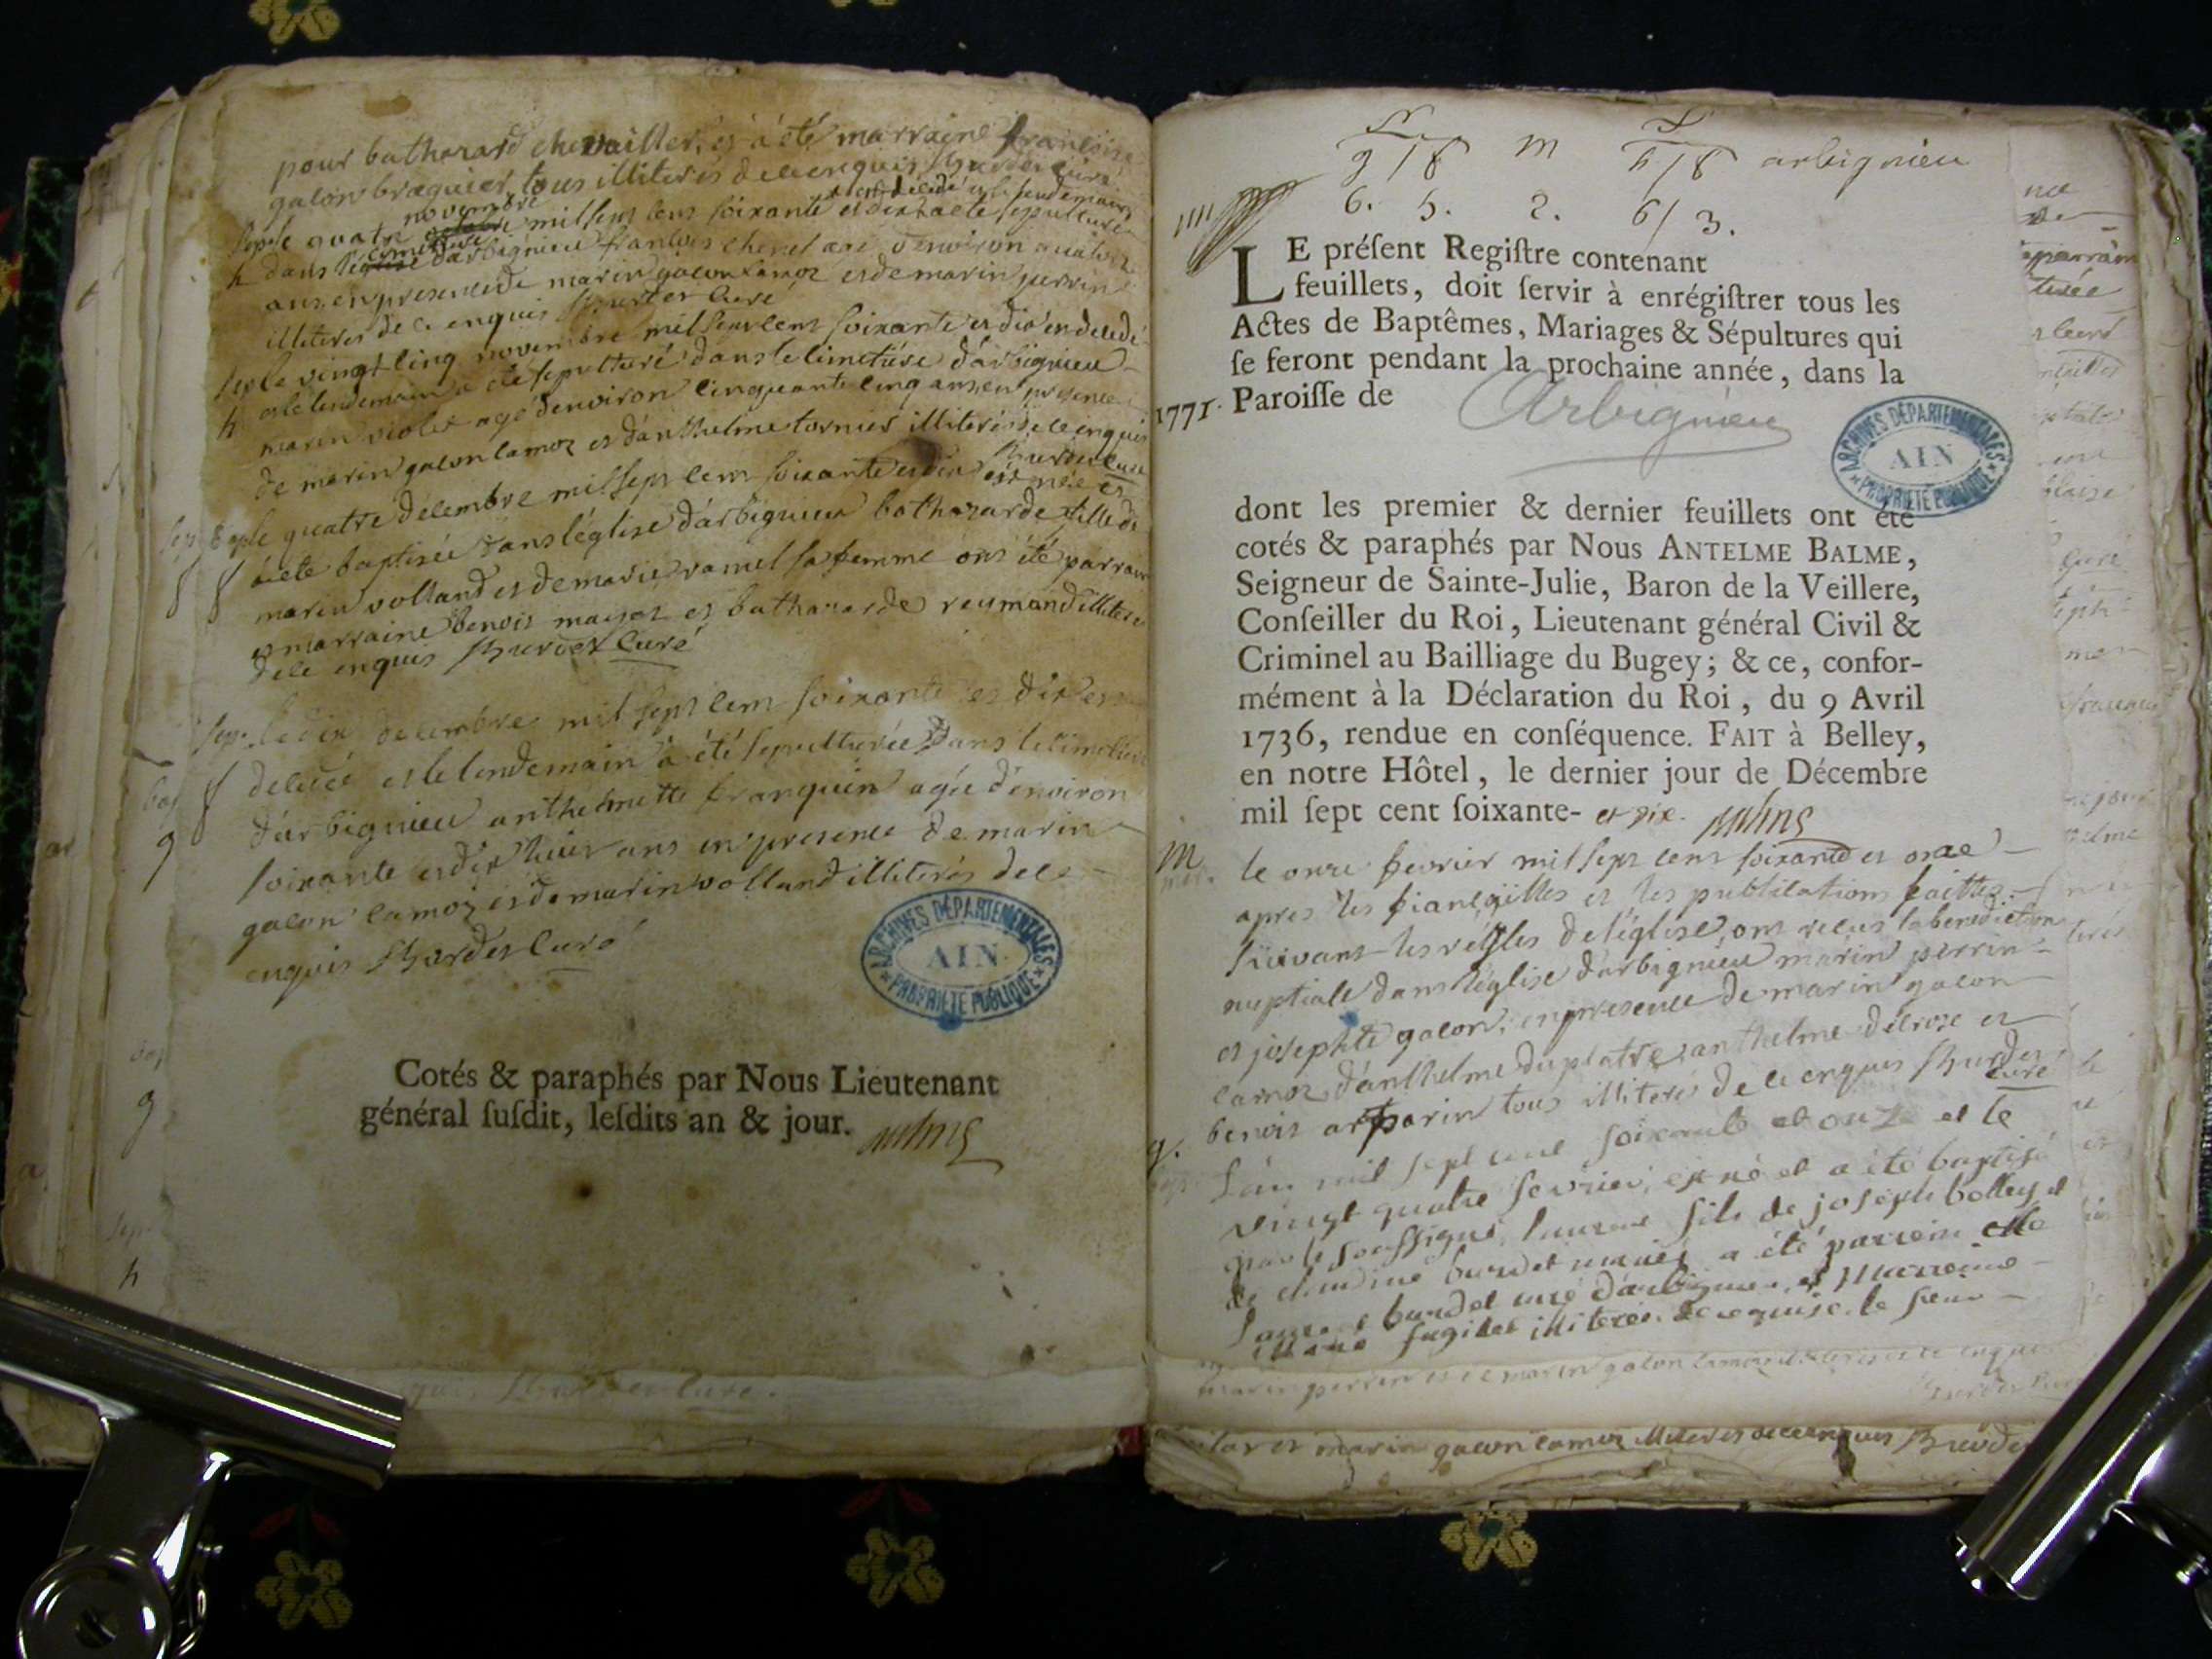 pour bathazard chevailler, et a été marraine francoise
galon braquier, tous illiterés de ce enquis Burdet curé
novembre est decedé et le lendemain
sep. le quatre octobre mil sept cens soixante et dix a ete sepulturé
cimetiere
h dans l'église d'arbignieu francois chenel agé d'environ quatorze
ans, en presence de marin galon lamoz et de marin perrin
illiterés de ce enquis Burdet curé
sep. le vingt cinq novembre mil sept cens soixante et dix est decedé
h et le lendemain a eté sepulturé dans le cimetiére d'arbignieu
marin violet agé d'environ cinquante cinq ans, en presence
de marin galon lamoz et d'anthelme tornier illiterés de ce enquis
Burdet curé
bap. le quatre decembre mil sept cens soixante et dix est née et
f a eté baptisée dans l'église d'arbignieu bathazarde fille de
marin volland et de marie ramel sa femme ont été parrain
et marraine benoit maret et bathazarde reymand illiterés
de ce enquis Burdet curé
sep. le dix decembre mil sept cens soixante et dix est
f decedée et le lendemain a été sepulturée dans le cimetiere
d'arbignieu anthelmette franquin agée d'environ
soixante et dix huit ans en presence de marin
galon lamoz et de marin volland illiterés de ce
enquis Burdet curé
ARCHIVES DÉPARTEMENTALES
AIN
PROPRIÉTÉ PUBLIQUE
Cotés & paraphés par Nous Lieutenant
général susdit, lesdits an & jour.
g / f m h / f arbignieu
6. 5. 2. 6/ 3.
LE présent Registre contenant
feuillets, doit servir à enrégistrer tous les
Actes de Baptêmes, Mariages & Sépultures qui
se feront pendant la prochaine année, dans la
1771. Paroisse de Arbignieu
ARCHIVES DÉPARTEMENTALES
AIN
PROPRIÉTÉ PUBLIQUE
dont les premier & dernier feuillets ont été
cotés & paraphés par Nous ANTELME BALME,
Seigneur de Sainte-Julie, Baron de la Veillere,
Conseiller du Roi, Lieutenant général Civil &
Criminel au Bailliage du Bugey; & ce, confor-
mément à la Déclaration du Roi, du 9 Avril
1736, rendue en conséquence. FAIT à Belley,
en notre Hôtel, le dernier jour de Décembre
mil sept cent soixante- et dix.
m le onze fevrier mil sept cens soixante et onze
apres les fiançailles et les publications faittes
suivant les régles de l'église, ont recus la benediction
nuptiale dans l'église d'arbignieu marin perrin
et josephte galon, en presence de marin galon
lamoz d'anthelme duplatre, anthelme decroze et
benoit tous illiterés de ce enquis Burdet
curé
g. l'an mil sept cent soixante et onze et le
vingt quatre fevrier, est né et a été baptisé
par le soussigné, laurent fils de joseph bolley et
de claudine burdet mariés a été parrein
laurent burdet curé d'arbignieu, et marreine
illiterée de ce requise. le sieur
marin perrin et de marin galon lamoz illiterés de ce enquis
marin galon lamoz illiterés de ce enquis Burdet